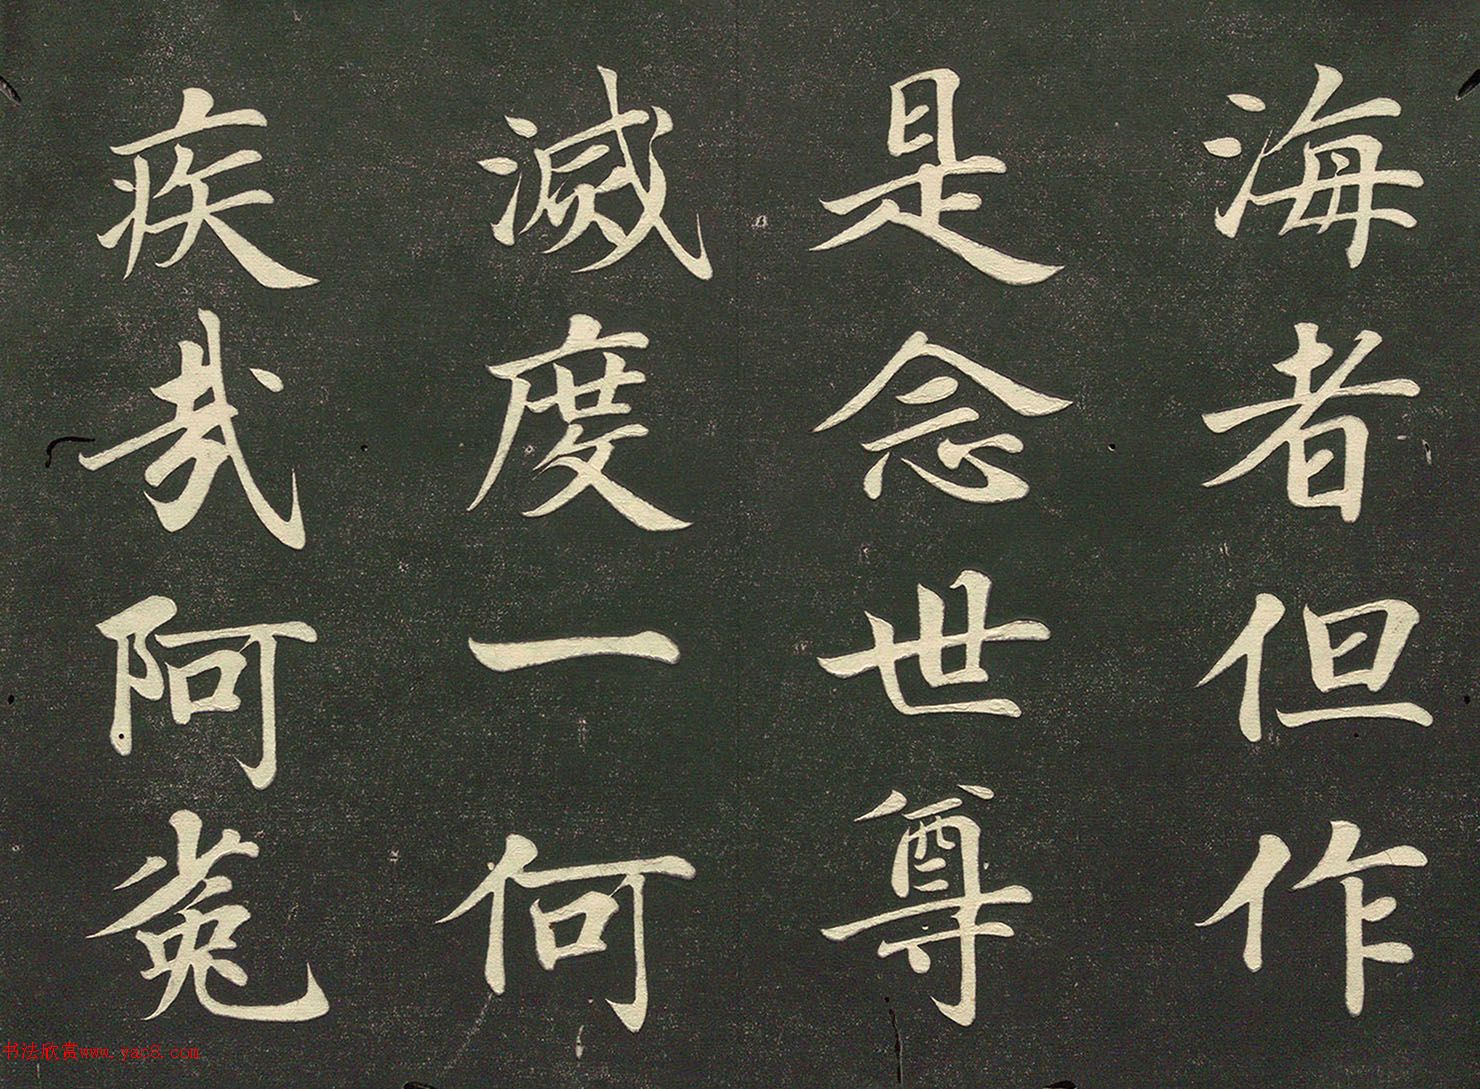 海者但作
是念世尊
滅度一何
疾哉阿㝹
书法欣赏www.yac8.com